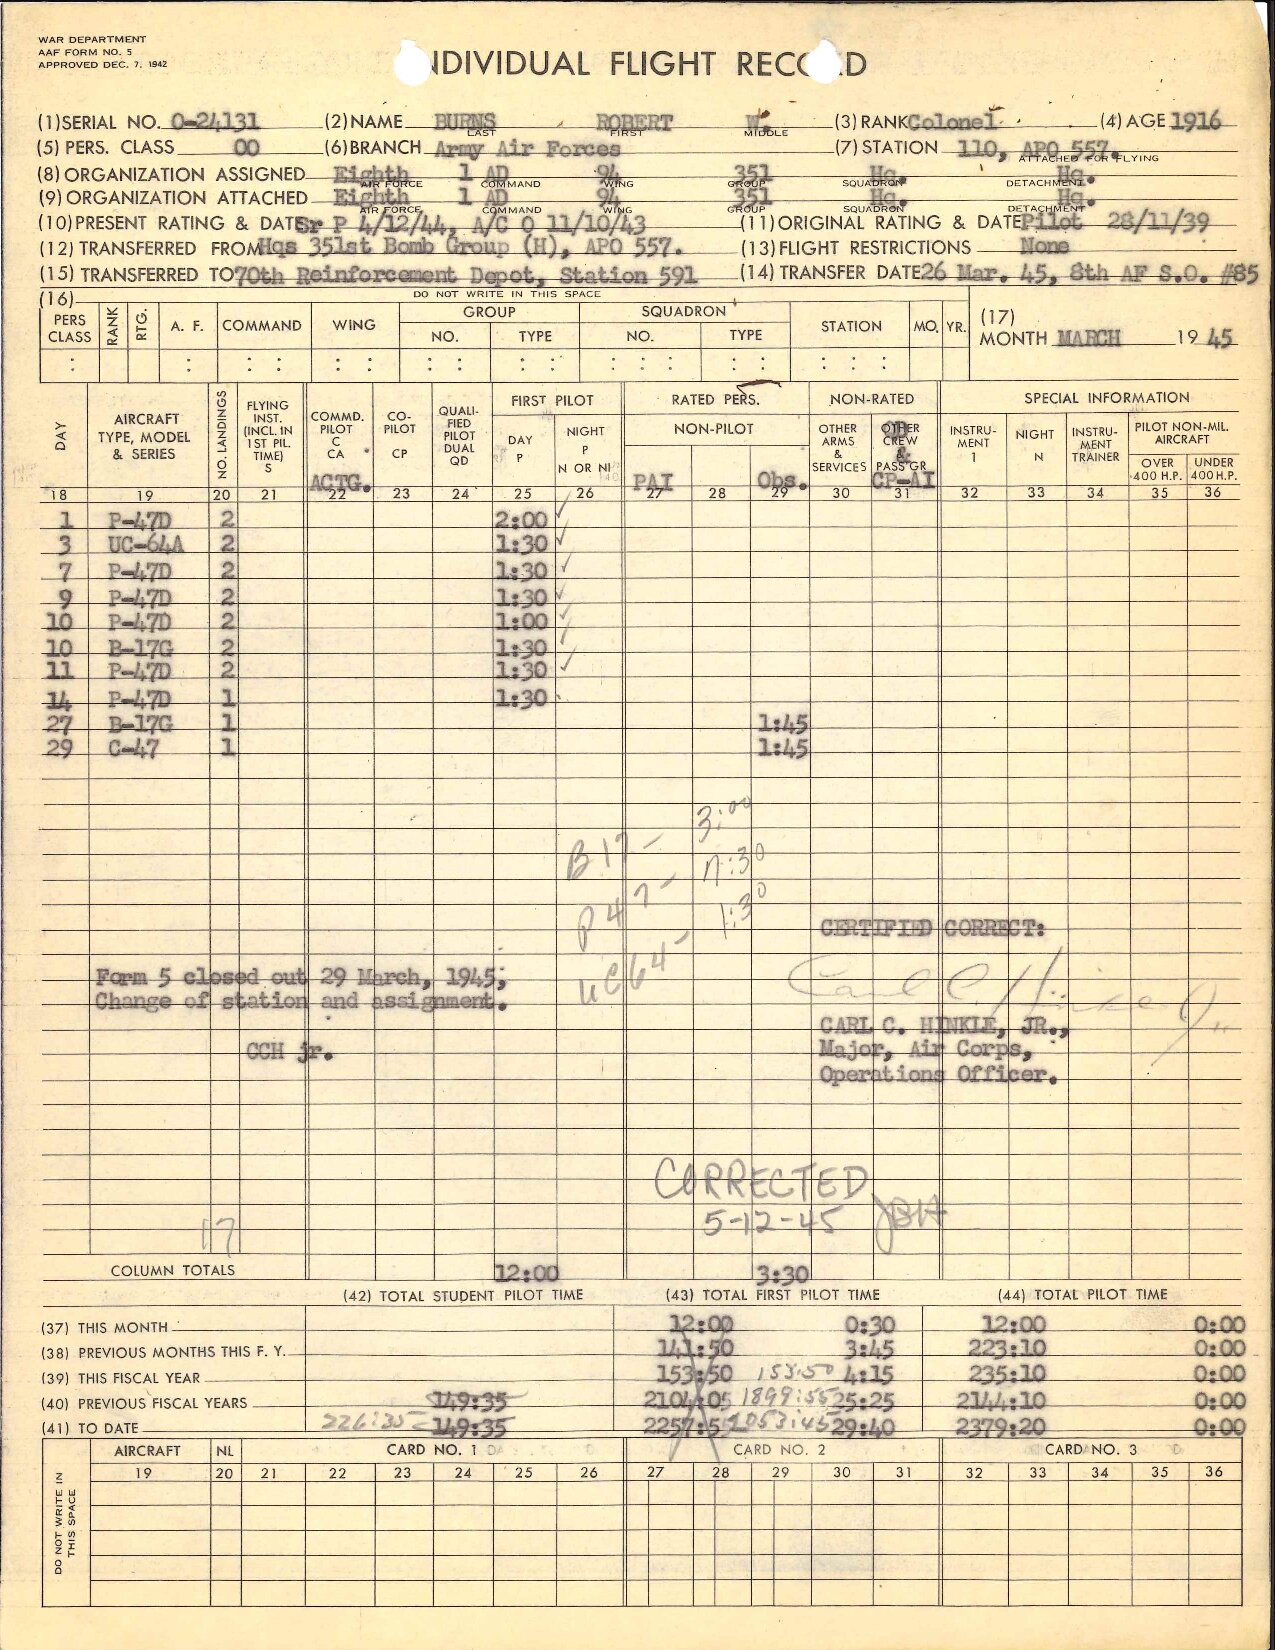 WAR DEPARTMENT
AAF FORM NO. 5
APPROVED DEC. 7, 1942
NDIVIDUAL FLIGHT REC D
(1) SERIAL NO. O-24131 (2) NAME BURNS ROBERT W. (3) RANK Colonel (4) AGE 1916
LAST FIRST MIDDLE
(5) PERS. CLASS 00 (6) BRANCH Army Air Forces (7) STATION 110, APO 557.
ATTACHED FOR FLYING
(8) ORGANIZATION ASSIGNED Eighth 1 AD 94 351 Hq. Hq.
AIR FORCE COMMAND WING GROUP SQUADRON DETACHMENT
(9) ORGANIZATION ATTACHED Eighth 1 AD 94 351 Hq. Hq.
AIR FORCE COMMAND WING GROUP SQUADRON DETACHMENT
(10) PRESENT RATING & DATE Sr P 4/12/44, A/C O 11/10/43 (11) ORIGINAL RATING & DATE Pilot 28/11/39
(12) TRANSFERRED FROM Hqs 351st Bomb Group (H), APO 557. (13) FLIGHT RESTRICTIONS None
(15) TRANSFERRED TO 70th Reinforcement Depot, Station 591 (14) TRANSFER DATE 26 Mar. 45, 8th AF S.O. #85
(16) DO NOT WRITE IN THIS SPACE
PERS CLASS RANK RTG. A. F. COMMAND WING GROUP NO. TYPE SQUADRON NO. TYPE STATION MO. YR.
(17) MONTH MARCH 19 45
DAY AIRCRAFT TYPE, MODEL & SERIES NO. LANDINGS FLYING INST. (INCL. IN 1ST PIL. TIME) S COMMD. PILOT C CA ACTG. CO-PILOT CP QUALIFIED PILOT DUAL QD FIRST PILOT DAY P NIGHT P N OR NI RATED PERS. NON-PILOT PAI Obs. NON-RATED OTHER ARMS & SERVICES OTHER CREW & PASS'GR CP-AI SPECIAL INFORMATION INSTRUMENT I NIGHT N INSTRU-MENT TRAINER PILOT NON-MIL. AIRCRAFT OVER 400 H.P. UNDER 400 H.P.
18 19 20 21 22 23 24 25 26 27 28 29 30 31 32 33 34 35 36
1 P-47D 2 2:00 ✓
3 UC-64A 2 1:30 ✓
7 P-47D 2 1:30 ✓
9 P-47D 2 1:30 ✓
10 P-47D 2 1:00 ✓
10 B-17G 2 1:30 ✓
11 P-47D 2 1:30 ✓
14 P-47D 1 1:30
27 B-17G 1 1:45
29 C-47 1 1:45
B17 - 3:00
P47 - 7:30
UC64 - 1:30
CERTIFIED CORRECT:
Form 5 closed out 29 March, 1945;
Change of station and assignment.
Carl C Hinkle Jr
CARL C. HINKLE, JR.,
CCH jr.
Major, Air Corps,
Operations Officer.
CORRECTED
5-12-45 JBH
17
COLUMN TOTALS 12:00 3:30
(42) TOTAL STUDENT PILOT TIME (43) TOTAL FIRST PILOT TIME (44) TOTAL PILOT TIME
(37) THIS MONTH 12:00 0:30 12:00 0:00
(38) PREVIOUS MONTHS THIS F. Y. 141:50 3:45 223:10 0:00
(39) THIS FISCAL YEAR 153:50 153:50 4:15 235:10 0:00
(40) PREVIOUS FISCAL YEARS 149:35 2104:05 1899:55 25:25 2144:10 0:00
(41) TO DATE 226:35 149:35 2257:5 2053:45 29:40 2379:20 0:00
DO NOT WRITE IN THIS SPACE
AIRCRAFT NL CARD NO. 1 CARD NO. 2 CARD NO. 3
19 20 21 22 23 24 25 26 27 28 29 30 31 32 33 34 35 36